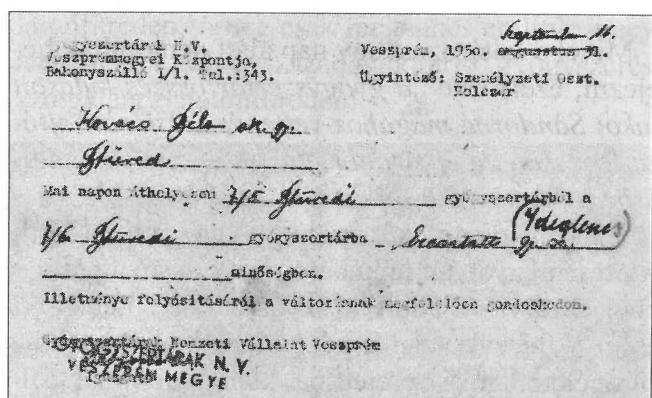 Gyógyszertárak N.V.
Veszprémmegyei Központja,
Bakonyszálló I/1. Tel.:343.
Szeptember 16.
Veszprém, 1950. augusztus 31.
Ügyintéző: Személyzeti oszt.
Holczer
Kovács Béla ok. gy.
Füred
Mai napon áthelyezem 7/5 Füredi gyógyszertárból a
7/6 Füredi gyógyszertárba Beosztott gy.
(Ideiglenes)
minőségben.
Illetménye folyósításáról a változásnak megfelelően gondoskodom.
Gyógyszertárak Nemzeti Vállalat Veszprém
GYÓGYSZERTÁRAK N. V.
VESZPRÉM MEGYE